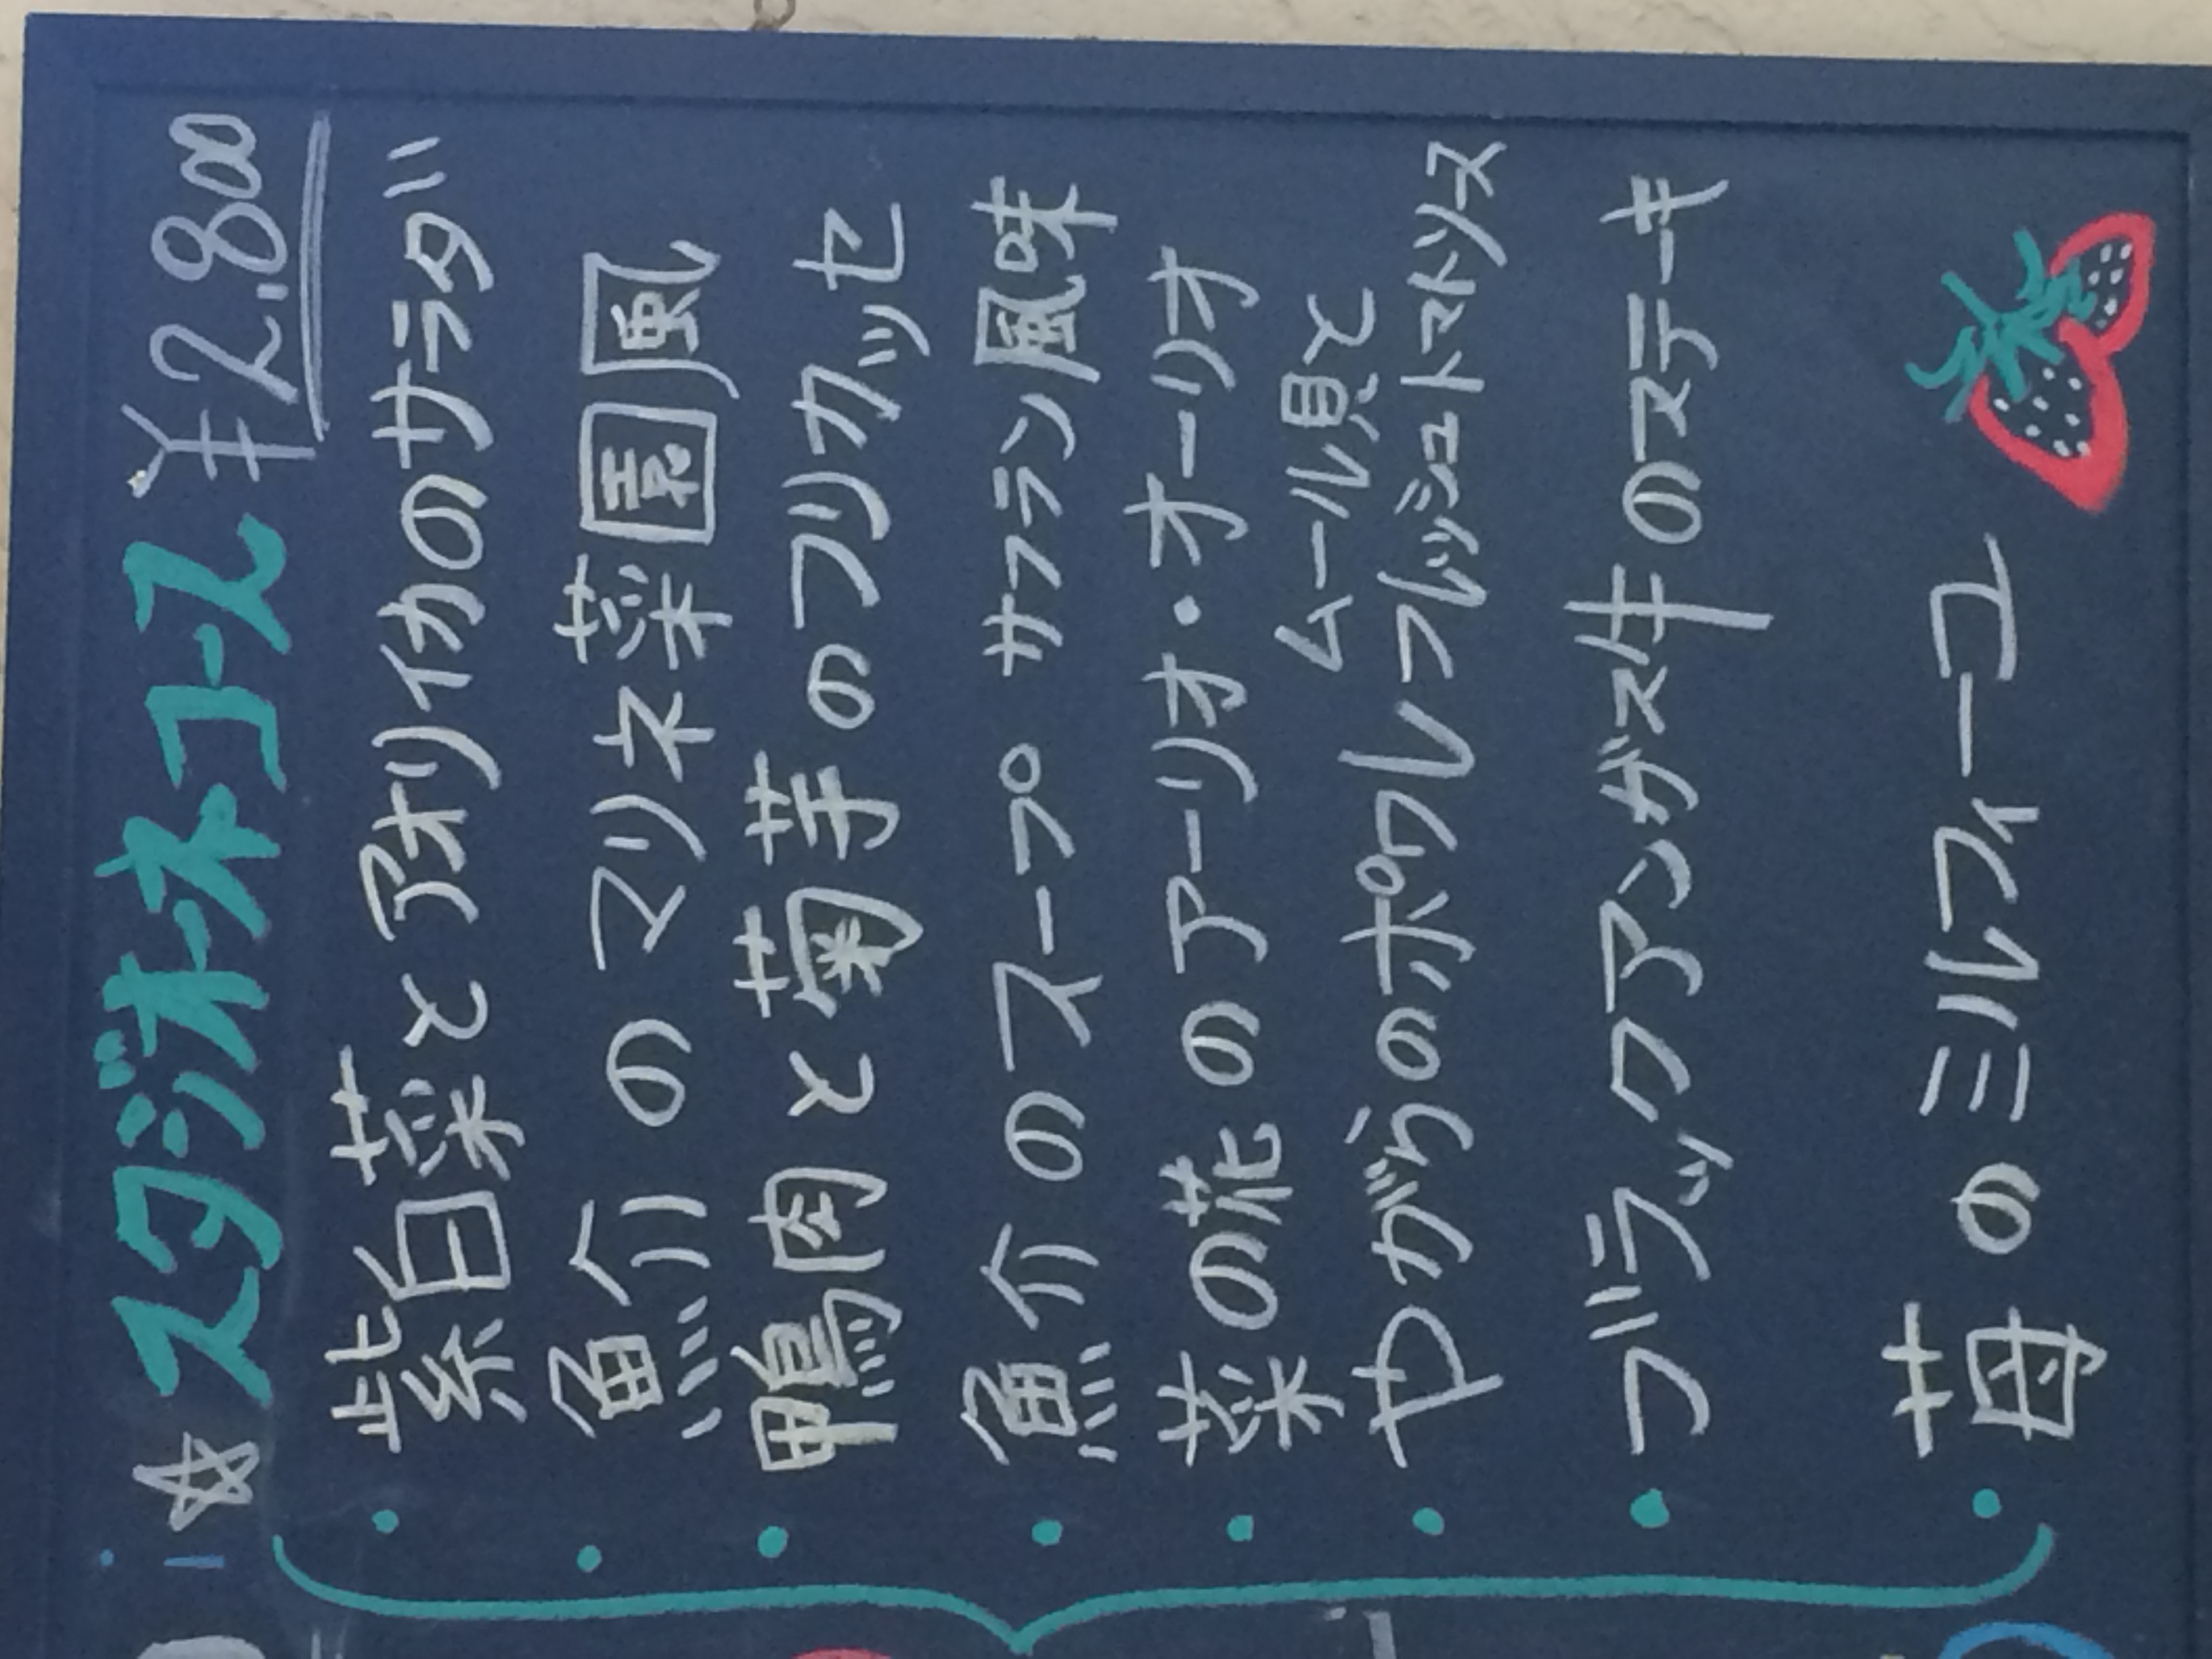 ☆スタジオーネコース ¥2,800
・紫白菜とアオリイカのサラダ
・魚介のマリネ 菜園風
・鴨肉と菊芋のフリカッセ
・魚介のスープ サフラン風味
・菜の花のアーリオ・オーリオ
・やがらのポワレ ムール貝と
フレッシュトマトソース
・ブラックアンガス牛のステーキ
・苺のミルフィーユ